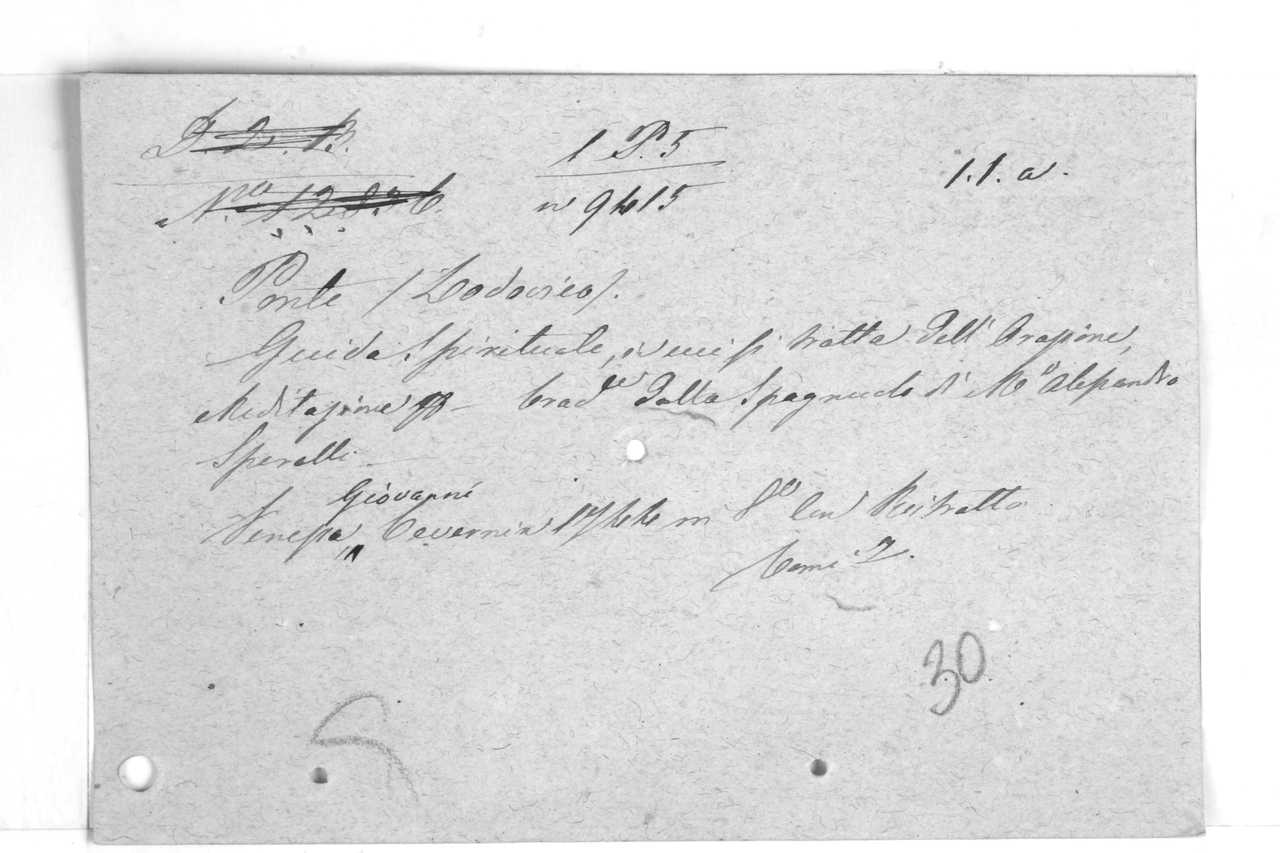 1 P. 5
n 9415
1.1.a.
Ponte (Lodovico).
Guida Spirituale, in cui si tratta dell'Orazione,
Meditazione trad.ne dalla Spagnuola di M.r Alessandro
Sperelli
Giovanni
Venezia Tevernin 1744 in 8º Con Ritratto
Tomi 2.
30